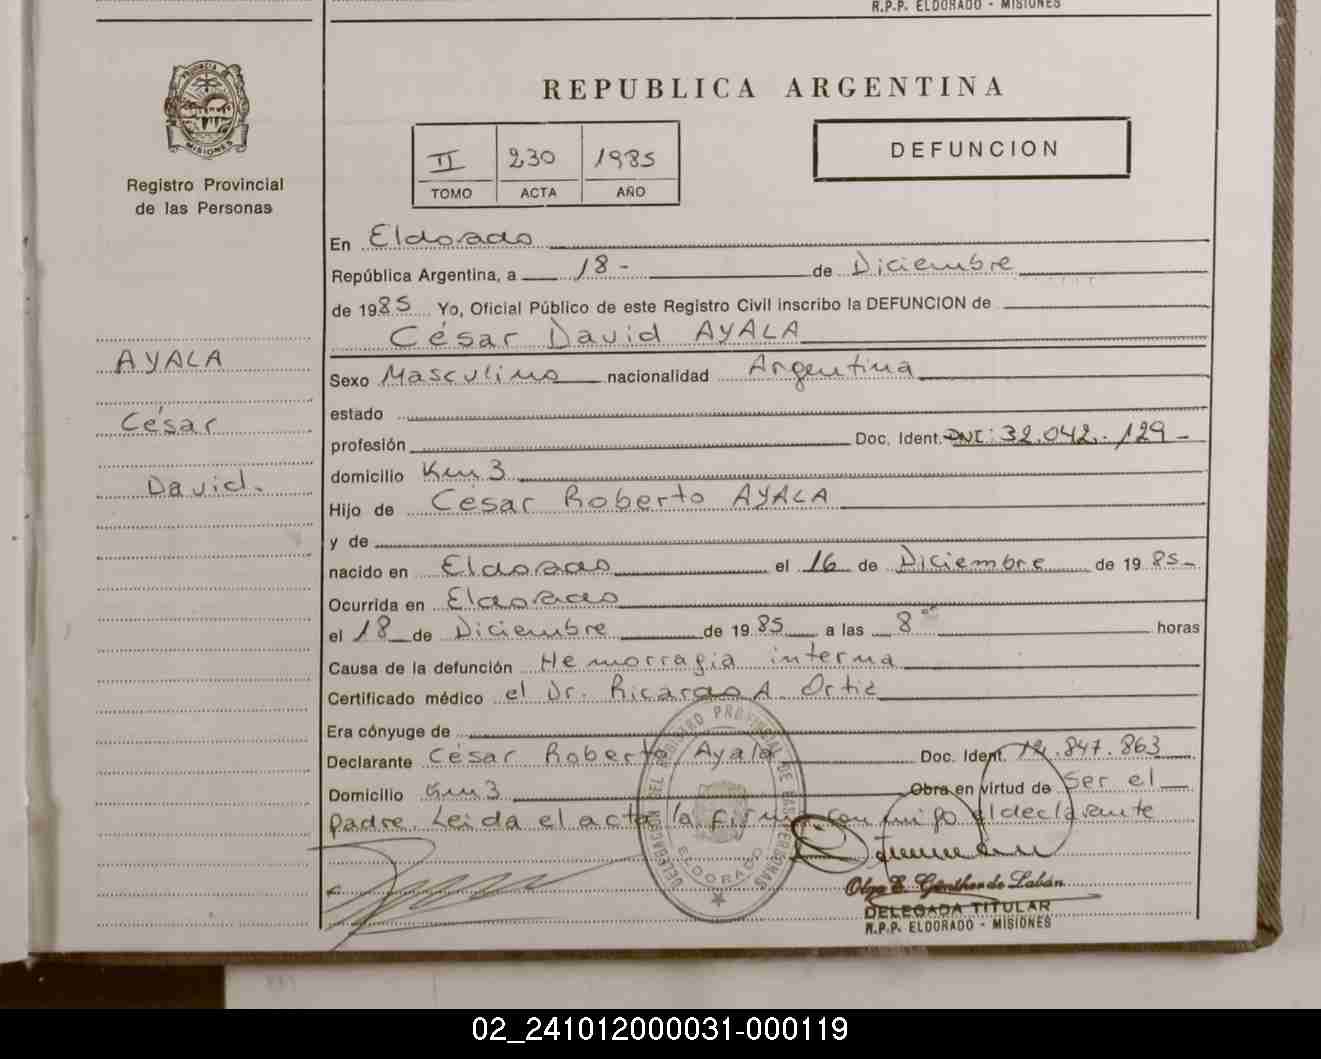 R.P.P. ELDORADO - MISIONES
PROVINCIA DE MISIONES
Registro Provincial
de las Personas
REPUBLICA ARGENTINA
II 230 1985
TOMO ACTA AÑO
DEFUNCION
En Eldorado
República Argentina, a 18 - de Diciembre
de 1985 Yo, Oficial Público de este Registro Civil inscribo la DEFUNCION de
César David AYALA
AYALA
César
David.
Sexo Masculino nacionalidad Argentina
estado
profesión Doc. Ident. DNI: 32.042.129 -
domicilio Km 3
Hijo de Cesar Roberto AYALA
y de
nacido en Eldorado el 16 de Diciembre de 1985-
Ocurrida en Eldorado
el 18 de Diciembre de 1985 a las 8 horas
Causa de la defunción Hemorragia interna
Certificado médico el Dr. Ricardo A. Ortiz
Era cónyuge de
Declarante César Roberto Ayala Doc. Ident. 12.847.863
Domicilio Km 3 Obra en virtud de Ser el
padre. Leida el acta la firma conmigo el declarante
DELEGACION DEL REGISTRO PROVINCIAL DE LAS PERSONAS
ELDORADO
Olga E. Günther de Labán
DELEGADA TITULAR
R.P.P. ELDORADO - MISIONES
02_241012000031-000119